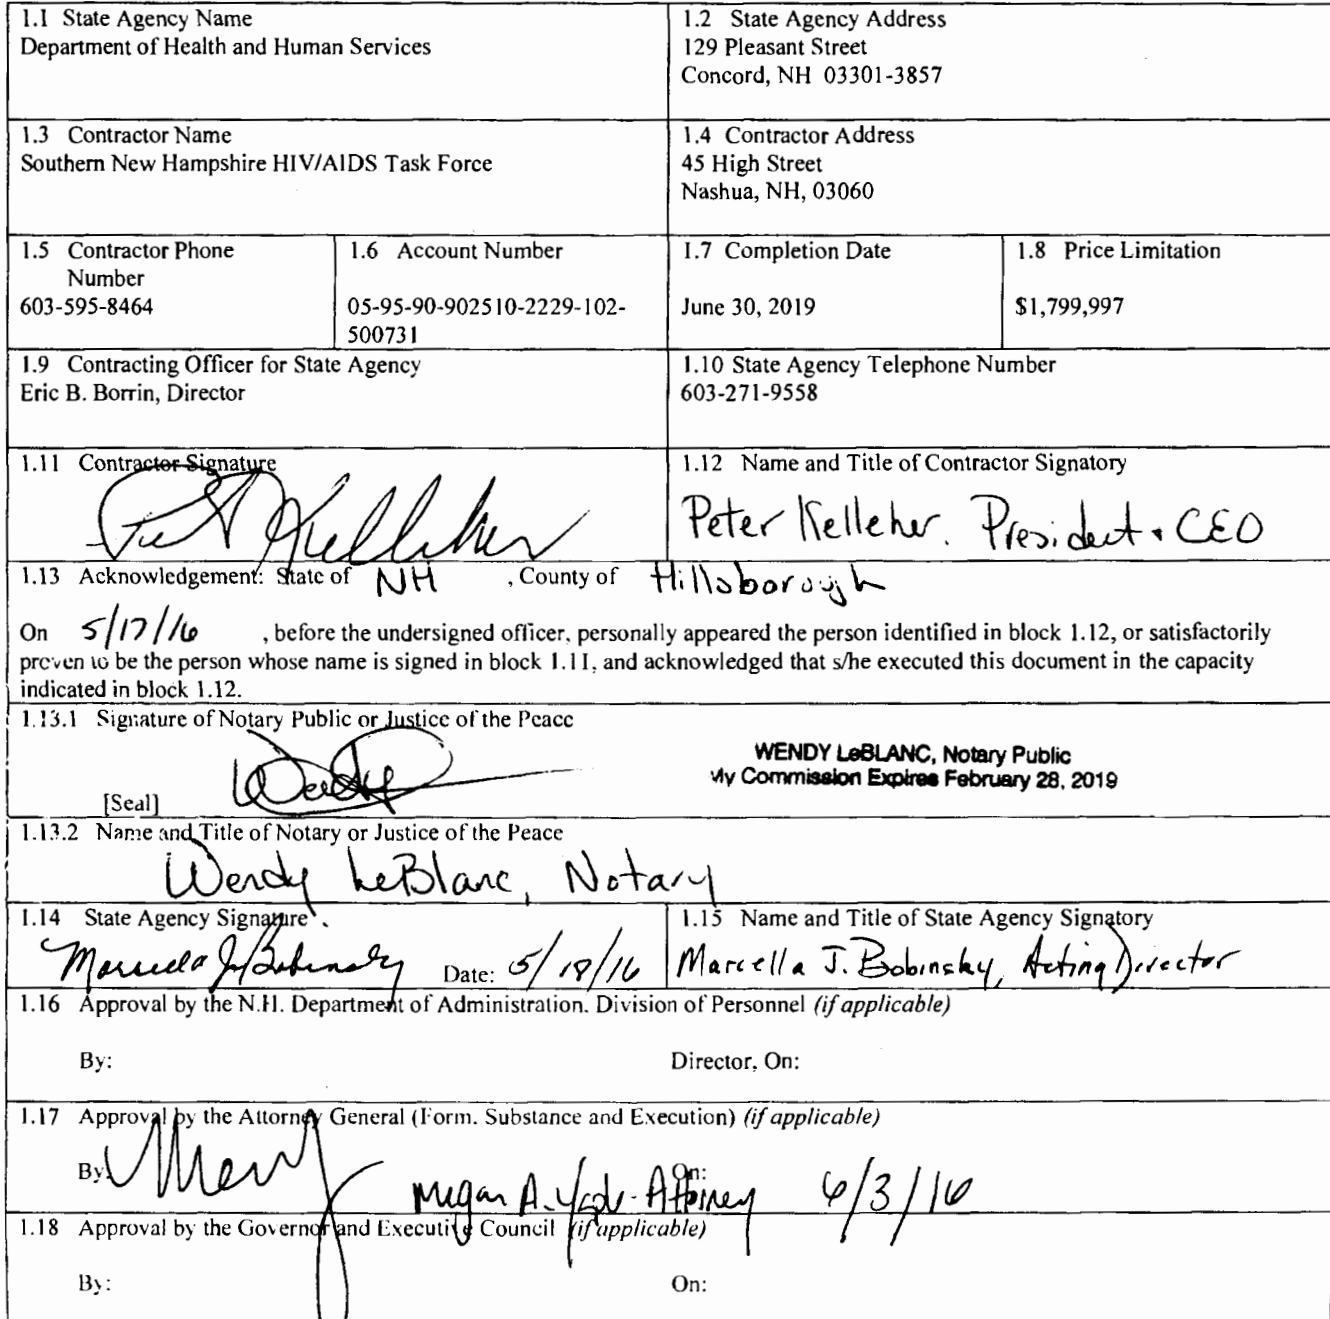 1.1 State Agency Name
Department of Health and Human Services
1.2 State Agency Address
129 Pleasant Street
Concord, NH 03301-3857
1.3 Contractor Name
Southern New Hampshire HIV/AIDS Task Force
1.4 Contractor Address
45 High Street
Nashua, NH, 03060
1.5 Contractor Phone
Number
603-595-8464
1.6 Account Number
05-95-90-902510-2229-102-
500731
1.7 Completion Date
June 30, 2019
1.8 Price Limitation
$1,799,997
1.9 Contracting Officer for State Agency
Eric B. Borrin, Director
1.10 State Agency Telephone Number
603-271-9558
1.11 Contractor Signature
1.12 Name and Title of Contractor Signatory
Peter Kelleher. President + CEO
1.13 Acknowledgement: State of NH , County of Hillsborough
On 5/17/16 , before the undersigned officer, personally appeared the person identified in block 1.12, or satisfactorily
proven to be the person whose name is signed in block 1.11, and acknowledged that s/he executed this document in the capacity
indicated in block 1.12.
1.13.1 Signature of Notary Public or Justice of the Peace
WENDY LeBLANC, Notary Public
My Commission Expires February 28, 2019
[Seal]
1.13.2 Name and Title of Notary or Justice of the Peace
Wendy LeBlanc, Notary
1.14 State Agency Signature
Marcella J Bobinsky Date: 5/18/16
1.15 Name and Title of State Agency Signatory
Marcella J. Bobinsky, Acting Director
1.16 Approval by the N.H. Department of Administration. Division of Personnel (if applicable)
By: Director, On:
1.17 Approval by the Attorney General (Form. Substance and Execution) (if applicable)
By: On:
Megan A. - Attorney 6/3/16
1.18 Approval by the Governor and Executive Council (if applicable)
By: On: